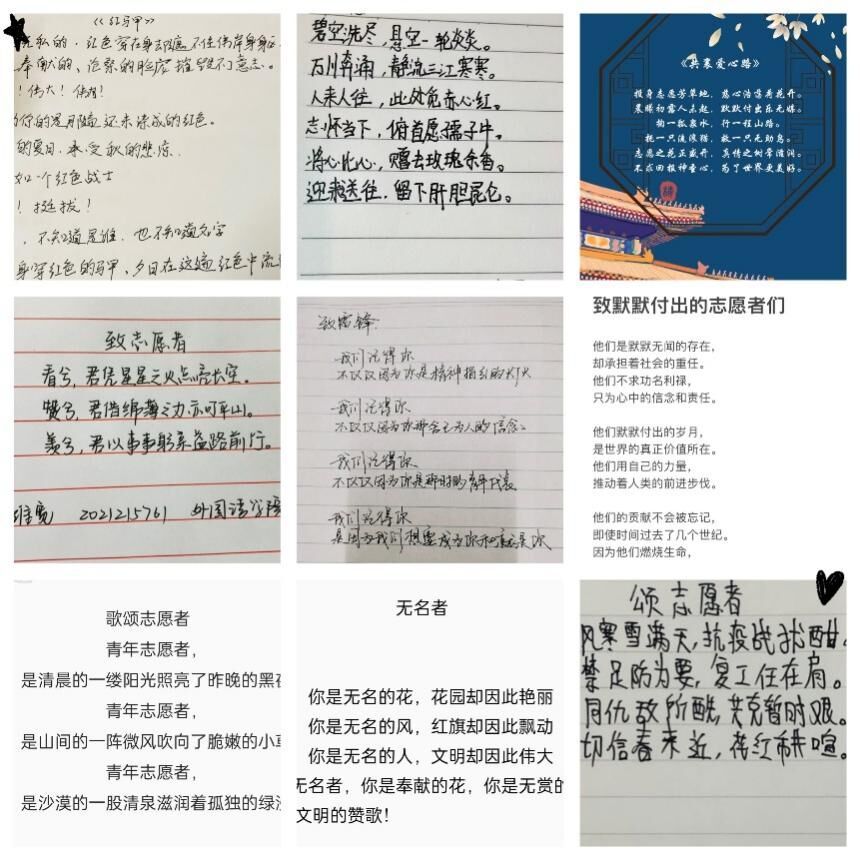 《红马甲》
无私的，红色穿在身却遮不住伟岸身
奉献的、沧桑的脸庞摧毁不了意志。
！伟大！
你的岁月随还未读成的红色。
的夏日，承受秋的悲凉
如一个红色战士
！挺拔！
，不知道思维，也不知道文字
身穿红色的马甲，夕日在这遍红色中流
碧空洗尽，悬空一轮炎炎。
万川奔涌，静流三江寒寒。
人来人往，此处觅赤心红。
志怀当下，俯首愿孺子牛。
将心比心，赠去玫瑰余香。
迎来送往，留下肝胆昆仑。
《共襄爱心路》
投身志愿芳草地，慈心浩荡荷花开。
晨曦初露人未起，默默付出乐无妹。
掬一孤泉水，行一程山路。
抚一只流浪猫，救一只无助鸟。
志愿之花正盛开，真情之树常清润。
不求回报神圣心，为了世界更美好。
致志愿者
看兮，君凭星星之火点亮长空。
赞兮，君借绵薄之力亦可平山。
美兮，君以事事躬亲益路前行。
2021215761 外国语学院
致雷锋：
我们记得你
不仅仅因为你是精神指引的灯火
我们记得你
不仅仅因为你那舍己为人的信念。
我们记得你
不仅仅因为你是那时的青年代表
我们记得你
是因为我们想要成为你和就是你
致默默付出的志愿者们
他们是默默无闻的存在，
却承担着社会的重任。
他们不求功名利禄，
只为心中的信念和责任。
他们默默付出的岁月，
是世界的真正价值所在。
他们用自己的力量，
推动着人类的前进步伐。
他们的贡献不会被忘记，
即使时间过去了几个世纪。
因为他们燃烧生命，
歌颂志愿者
青年志愿者，
是清晨的一缕阳光照亮了昨晚的黑夜
青年志愿者，
是山间的一阵微风吹向了脆嫩的小草
青年志愿者，
是沙漠的一股清泉滋润着孤独的绿洲
无名者
你是无名的花，花园却因此艳丽
你是无名的风，红旗却因此飘动
你是无名的人，文明却因此伟大
无名者，你是奉献的花，你是无赏的
文明的赞歌！
颂志愿者
风寒雪满天，抗疫战犹酣。
禁足防为要，复工任在肩。
同仇敌所酰，共克暂时艰。
切信春来近，花红市井喧。